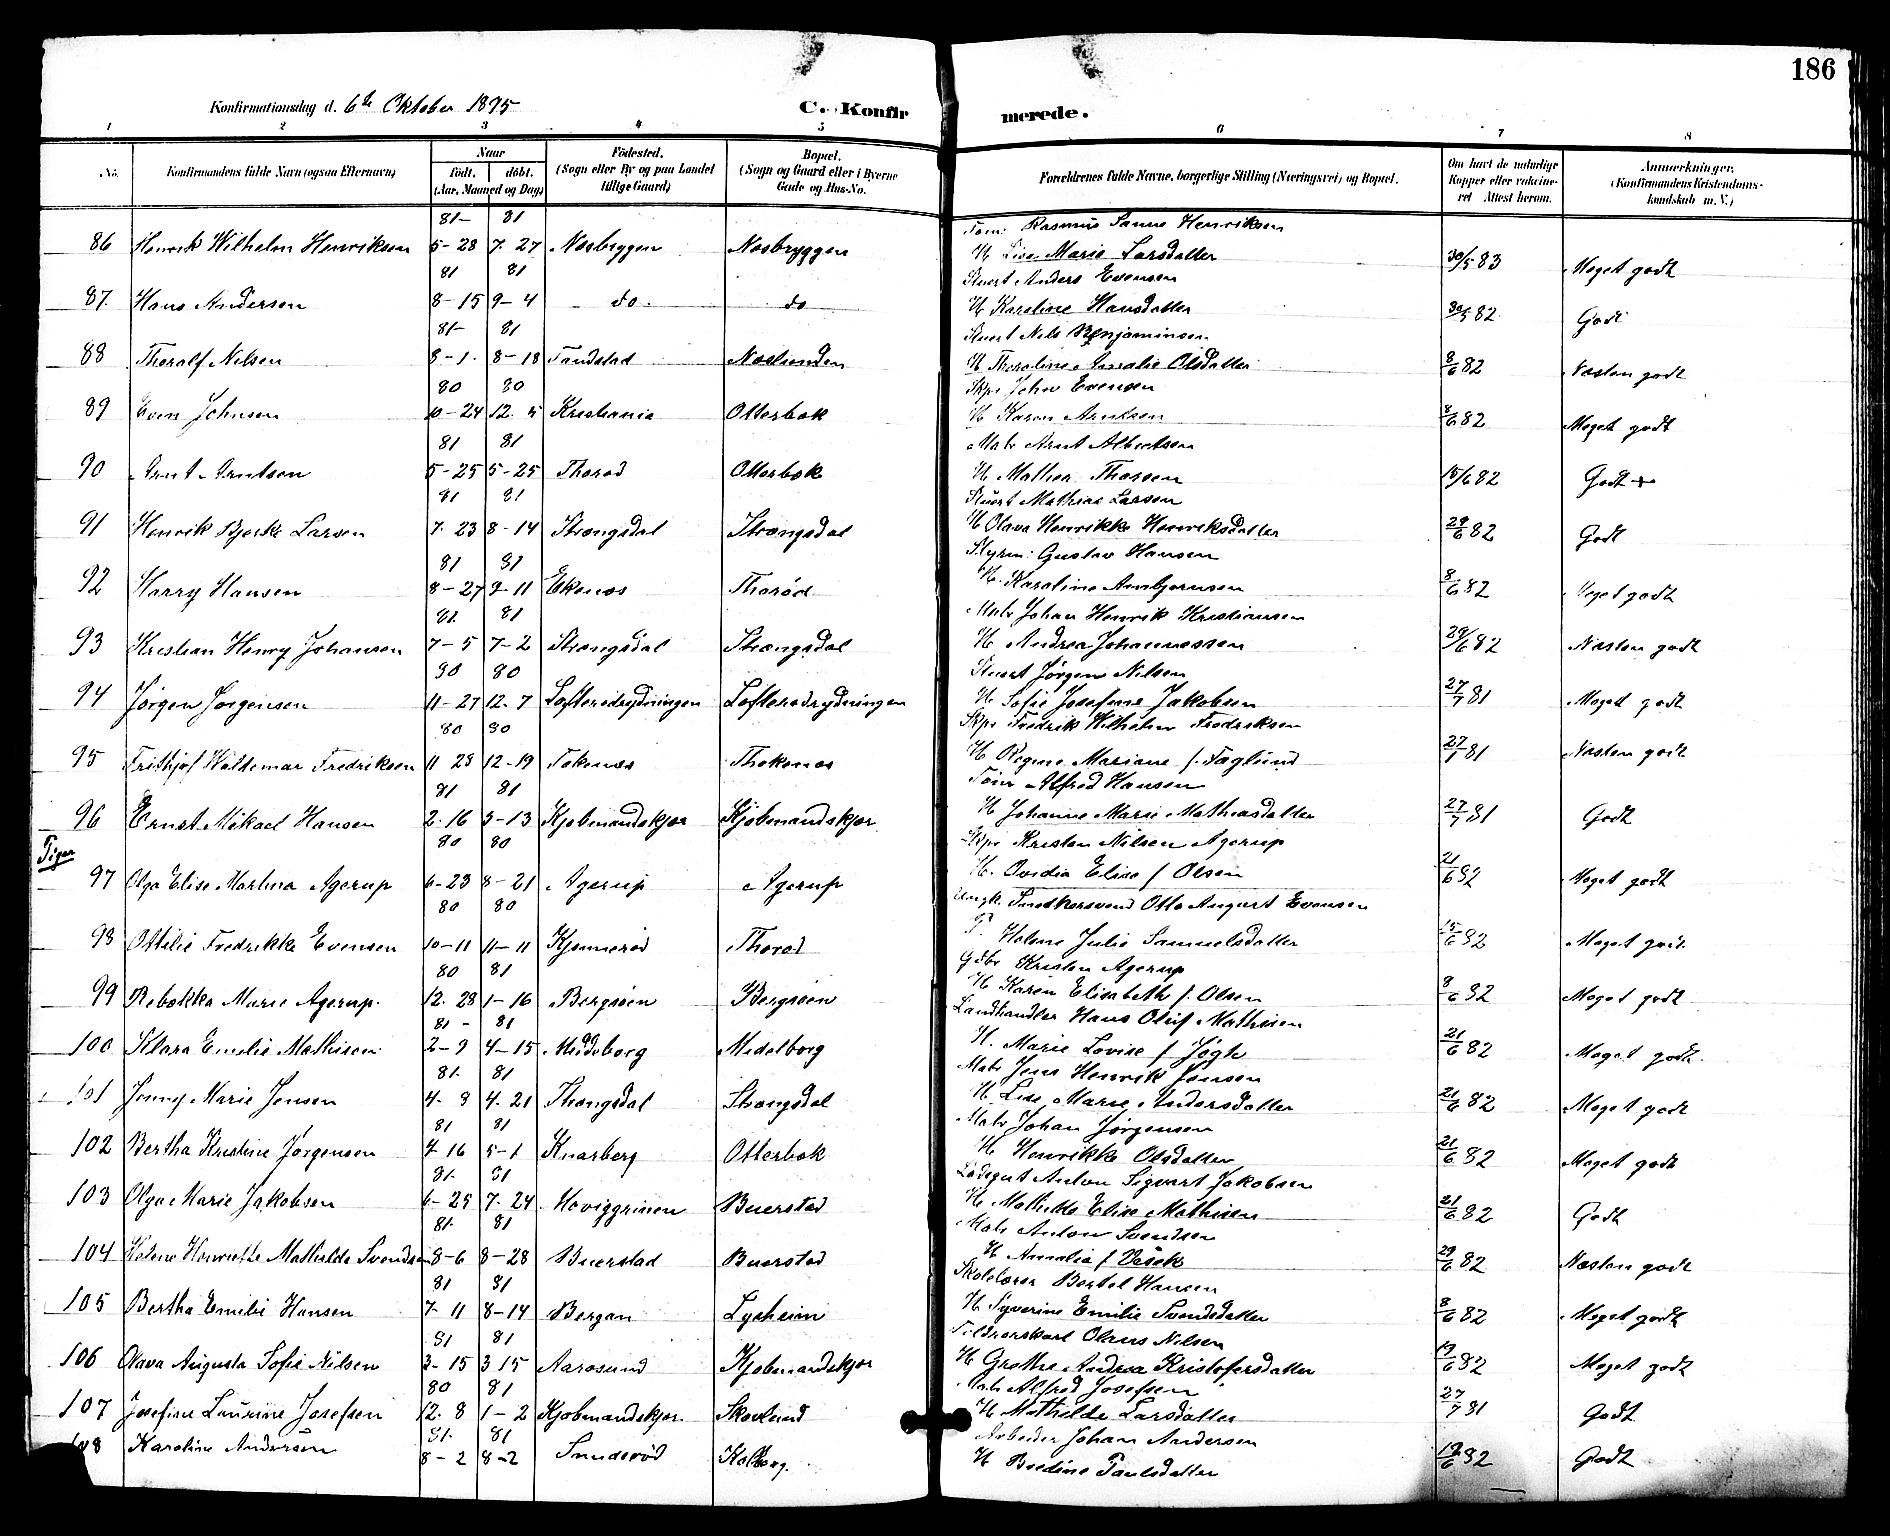 186
Konfirmationsdag d. 6te Oktober 1895 C. Konfir merede.
1 2 3 4 5 6 7 8
No. Konfirmandens fulde Navn (ogsaa Efternavn) Naar Födt. döbt. (Aar, Maaned og Dag) Födested. (Sogn eller By og paa Landet tillige Gaard) Bopæl. (Sogn og Gaard eller i Byerne Gade og Hus-No. Forældrenes fulde Navne, borgerlige Stilling (Næringsvei) og Bopæl. Om havt de naturlige Kopper eller vakcineret Attest herom. Anmærkninger. (Konfirmandens Kristendomskundskab m. V.)
81- 81 Tøm: Rasmus Sanne Henriksen
86 Henrik Wilhelm Henriksen 5-28 7-27 Nesbryggen Nesbryggen H Lise Marie Larsdatter 30/5 83 Meget godt
81 81 Stuert Anders Evensen
87 Hans Andersen 8-15 9-4 do do H Karoline Hansdatter 30/5 82 Godt
81- 81 Stuert Nils Benjaminsen
88 Thoralf Nilsen 8-1 8-18 Tandstad Neslunden H Thoraline Amalie Olsdatter 8/6 82 Næsten godt
80 80 Skpr John Evensen
89 Even Johnsen 10-24 12-5 Kristiania Otterbæk H Karen Arntsen 8/6 82 Meget godt
81 81 Matr Arnt Albertsen
90 Arnt Arntsen 5-25 5-25 Thorød Otterbæk H Mathea Thorsen 15/6 82 Godt +
81 81 Stuert Mathias Larsen
91 Henrik Bjerke Larsen 7-23 8-14 Strængsdal Strængsdal H Olava Henrikke Henriksdatter 29/6 82 Godt
81 81 Styrm: Gustav Hansen
92 Harry Hansen 8-27 9-11 Ekenes Thorød H. Karoline Anbjørnsen 8/6 82 Meget godt
81 81 Matr Johan Henrik Kristiansen
93 Kristian Henry Johansen 7-5 7-2 Strængsdal Strængsdal H Andrea Johannessen 29/6 82 Næsten godt
80 80 Stuert Jørgen Nilsen
94 Jørgen Jørgensen 11-27 12-7 Lofterødrydningen Lofterødrydningen H Sofie Josefine Jakobsen 27/7 81 Meget godt
80 80 Skpr Fredrik Wilhelm Fredriksen
95 Frithjof Waldemar Fredriksen 11 28 12-19 Tokenes Thokenes H Regine Mariane f. Faglund 27/7 81 Næsten godt
81 81 Tøm Alfred Hansen
96 Ernst Mikael Hansen 2-16 3-13 Kjøbmandskjær Kjøbmandskjær H Johanne Marie Mathiasdatter 27/7 81 Godt
Piger 80 80 Skpr Kristen Nilsen Agerup
97 Olga Elise Martina Agerup 6-23 8-21 Agerup Agerup H. Ovidia Elise f Olsen 21/6 82 Meget godt
80 80 Ungk. Snedkersvend Otto August Evensen
98 Ottilie Fredrikke Evensen 10-11 11-11 Kjønnerød Thorød P. Helene Julie Samuelsdatter 15/6 82 Meget godt
80 81 Gdbr Kristen Agerup
99 Rebekka Marie Agerup 12-28 1-16 Bergsøen Bergsøen H Karen Elisabeth f. Olsen 8/6 82 Meget godt
81- 81 Landhandler Hans Oluf Mathisen
100 Klara Emilie Mathisen 2-9 4-15 Middelborg Medelborg H. Marie Lovise f Jøgh 21/6 82 Meget godt
81 81 Matr Jens Henrik Jensen
101 Jenny Marie Jensen 4-8 4-21 Strængsdal Strængsdal H. Lise Marie Andersdatter 21/6 82 Meget godt
81 81 Matr Johan Jørgensen
102 Bertha Kristine Jørgensen 4-16 5-1 Knarberg Otterbæk H Henrikke Olsdatter 21/6 82 Meget godt
81 81 Lodsgut Anton Sigvart Jakobsen
103 Olga Marie Jakobsen 6-25 7-24 Buerstad H Mathilde Elise Mathisen 21/6 82 Godt
81 81 Matr Anton Svendsen
104 Helene Henriette Mathilde Svendsen 8-6 8-28 Buerstad Buerstad H Amalia f 29/6 82 Næsten godt
81 81 Skolelærer Bertel Hansen
105 Bertha Emilie Hansen 7-11 8-14 Bergan Lysheim H Syverine Emilie Svendsdatter 8/6 82 Meget godt
81 81 Olaus Nilsen
106 Olava Augusta Sofie Nilsen 3-15 3 15 Aarosund Kjøbmandskjær H Grethe Andrea Kristofersdatter 19/6 82 Meget godt
80 81 Matr Alfred Josefsen
107 Josefine Laurine Josefsen 12-8 1-2 Kjøbmandskjær Skovlund H Mathilde Larsdatter 27/7 81 Godt
81 81 Arbeider Johan Andersen
108 Karoline Andersen 8-2 8-2 Smidsrød Kolberg H Bredine Paulsdatter 19/6 82 Godt